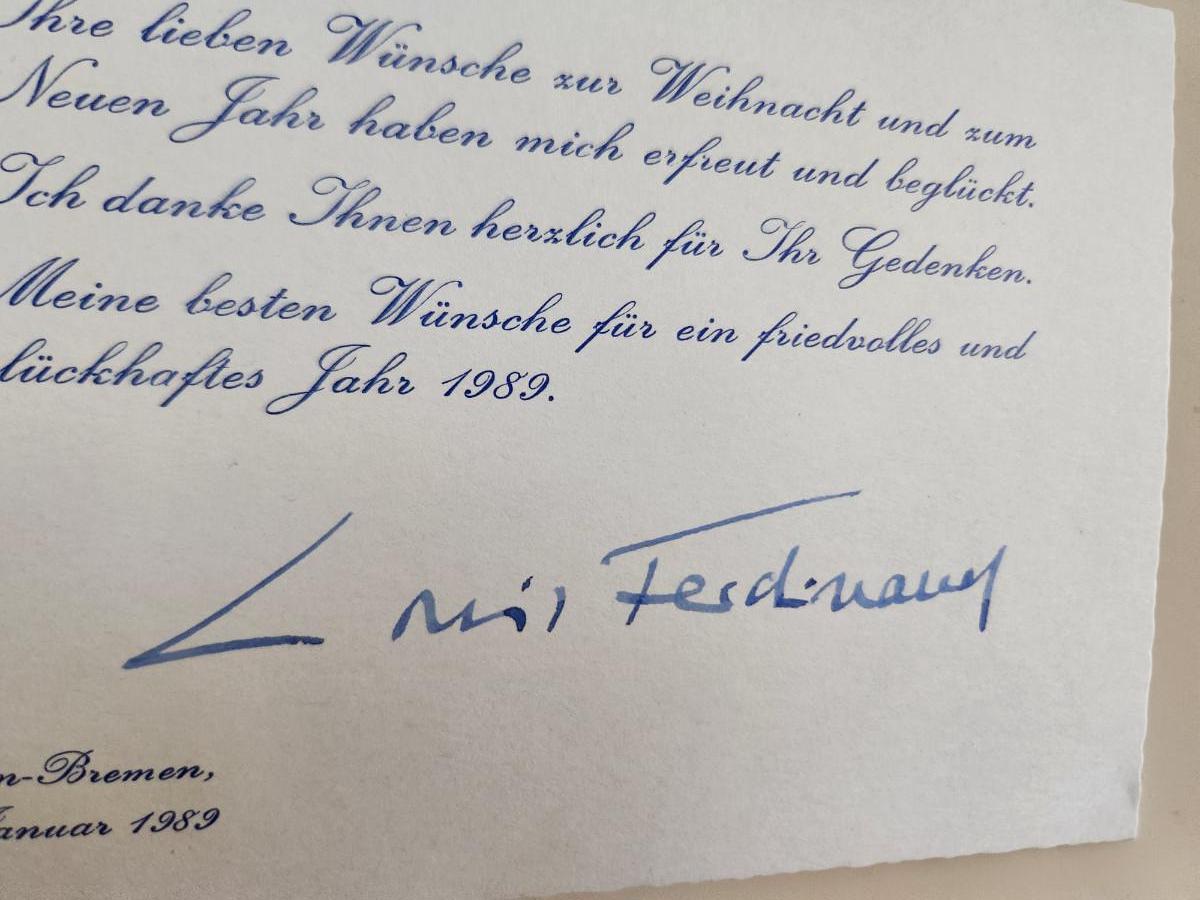 Ihre lieben Wünsche zur Weihnacht und zum
Neuen Jahr haben mich erfreut und beglückt.
Ich danke Ihnen herzlich für Ihr Gedenken.
Meine besten Wünsche für ein friedvolles und
lückhaftes Jahr 1989.
Louis Ferdinand
n-Bremen,
anuar 1989